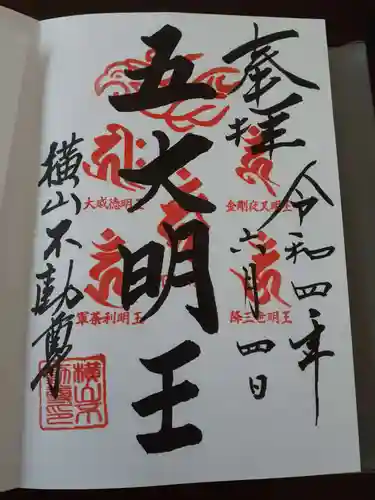 奉拝
令和四年
六月四日
五大明王
金剛夜叉明王
大威徳明王
降三世明王
軍荼利明王
横山不動尊